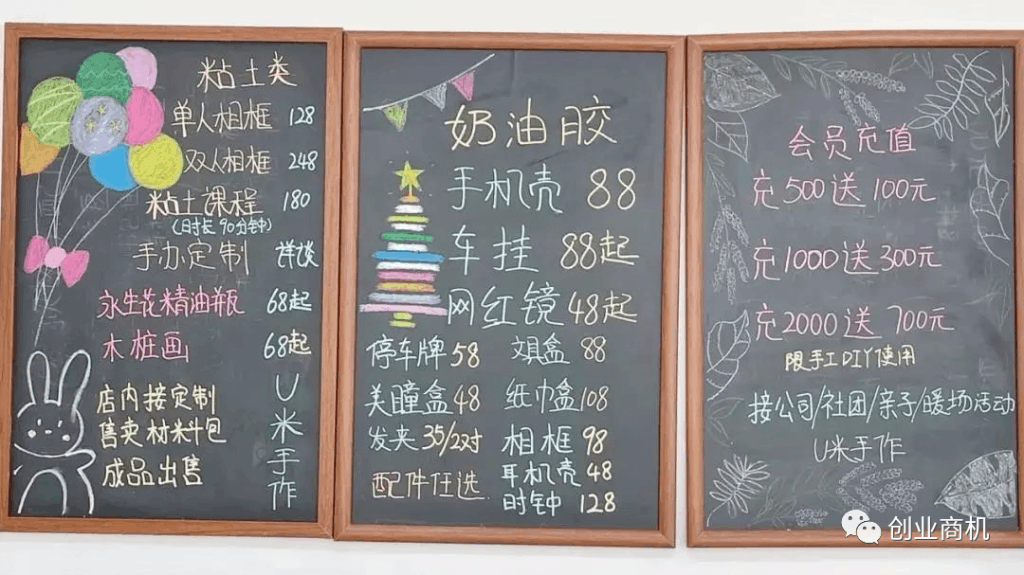 粘土类
单人相框 128
双人相框 248
粘土课程 180
(时长90分钟)
手办定制 详谈
永生花精油瓶 68起
木桩画 68起
店内接定制
售卖材料包
成品出售
U米手作
奶油胶
手机壳 88
车挂 88起
网红镜 48起
停车牌 58 文具盒 88
美瞳盒 48 纸巾盒 108
发夹 35/2对 相框 98
配件任选 耳机壳 48
时钟 128
会员充值
充500送100元
充1000送300元
充2000送700元
限手工DIY使用
接公司/社团/亲子/暖场活动
U米手作
创业商机